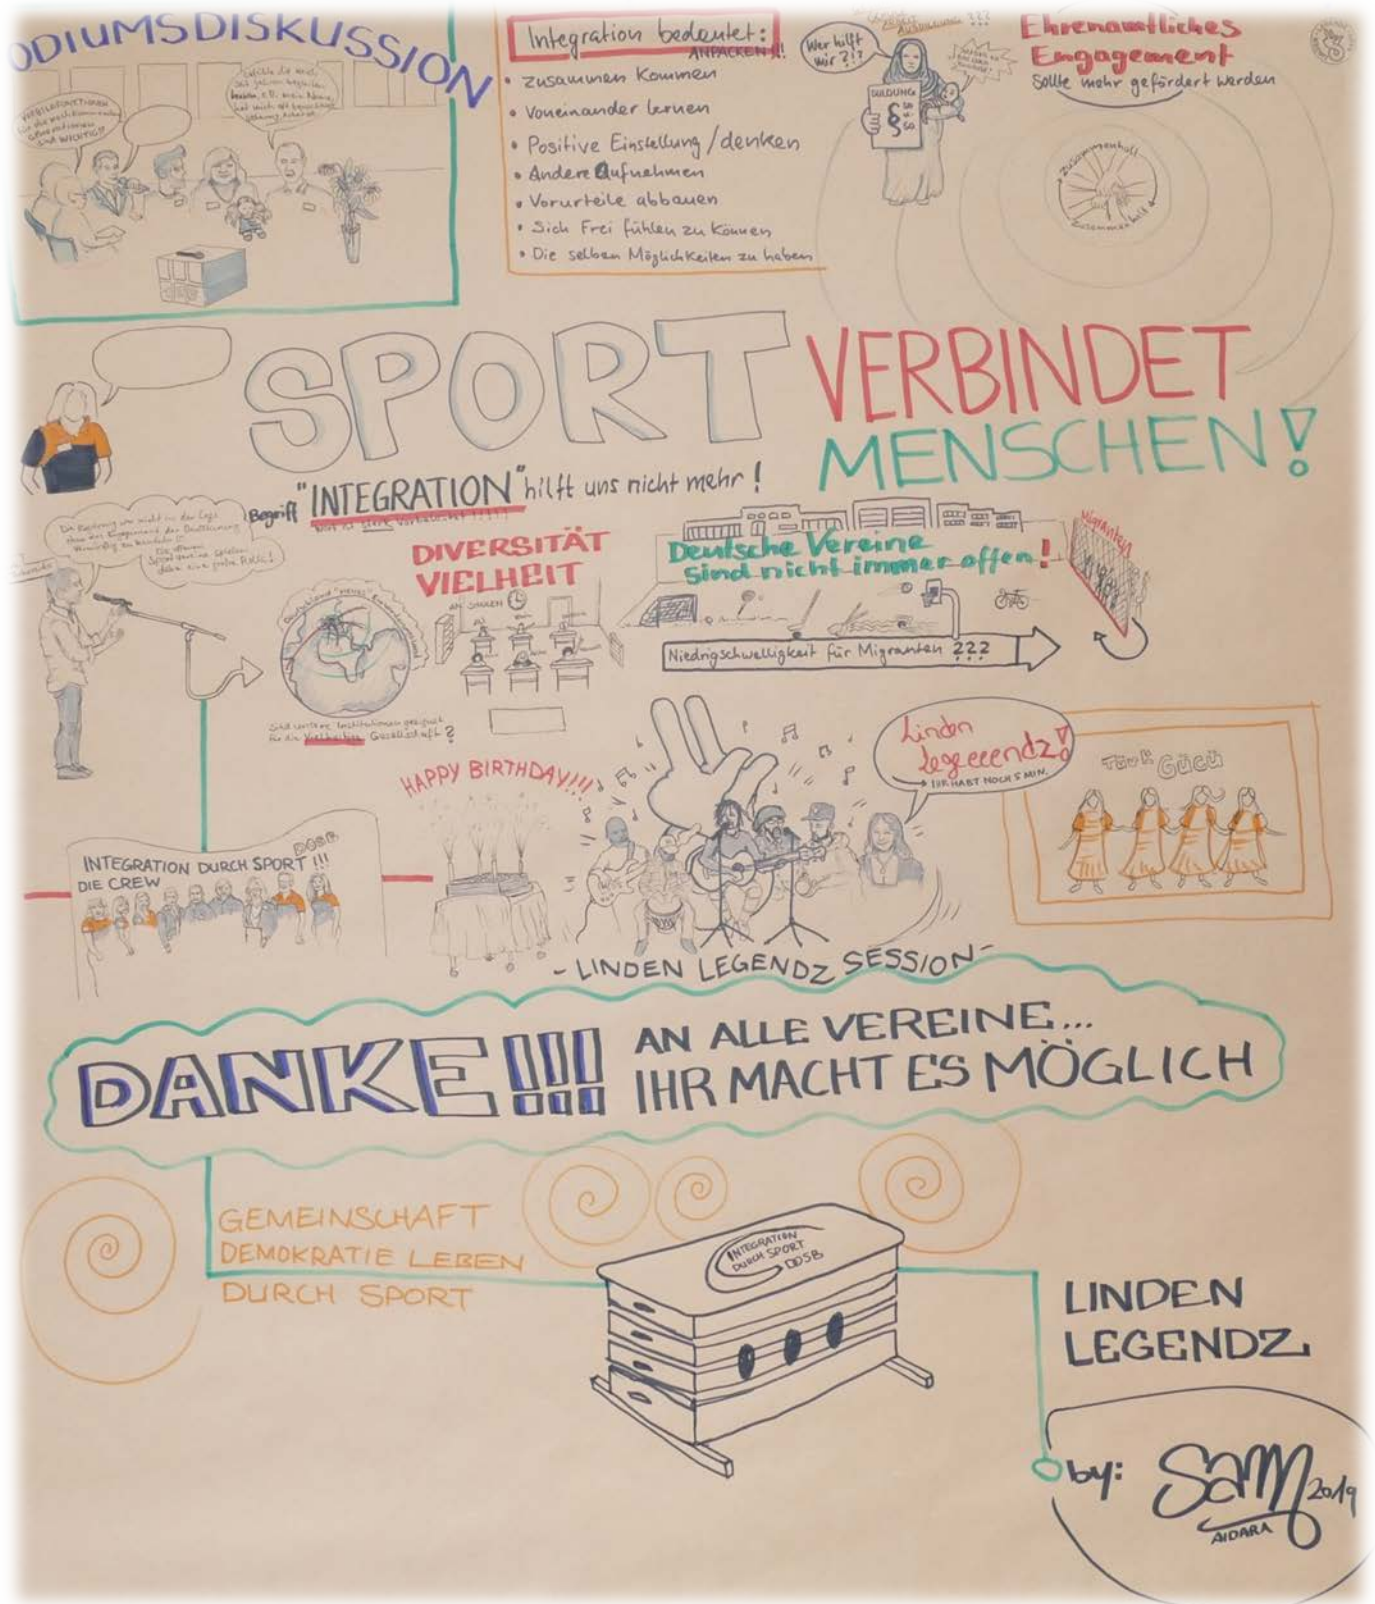 ODIUMSDISKUSSION
VORBILDFUNKTIONEN
für die nachkommenden
Generationen
sind WICHTIG!!
Integration bedeutet:
ANPACKEN!!!
• zusammen Kommen
• Voneinander lernen
• Positive Einstellung / denken
• Andere Aufnehmen
• Vorurteile abbauen
• Sich Frei fühlen zu können
• Die selben Möglichkeiten zu haben
Wer hilft
mir ?!?
DULDUNG
§ § §
Ehrenamtliches
Engagement
Sollte mehr gefördert werden
Zusammenhalt
Zusammenhalt
SPORT VERBINDET
MENSCHEN!
Begriff "INTEGRATION" hilft uns nicht mehr!
DIVERSITÄT
VIELHEIT
AN SCHULEN
Deutsche Vereine
sind nicht immer offen!
Migranten
Niedrigschwelligkeit für Migranten ???
Sind unsere Institutionen geeignet
für die Vielheitige Gesellschaft?
HAPPY BIRTHDAY!!!
Linden
Legeeendz!
→ IHR HABT NOCH 5 MIN.
Türk Gücü
DOSB
INTEGRATION DURCH SPORT !!!
DIE CREW
- LINDEN LEGENDZ SESSION -
DANKE!!! AN ALLE VEREINE...
IHR MACHT ES MÖGLICH
GEMEINSCHAFT
DEMOKRATIE LEBEN
DURCH SPORT
INTEGRATION
DURCH SPORT
DOSB
LINDEN
LEGENDZ
by: Sam 2019
AIDARA